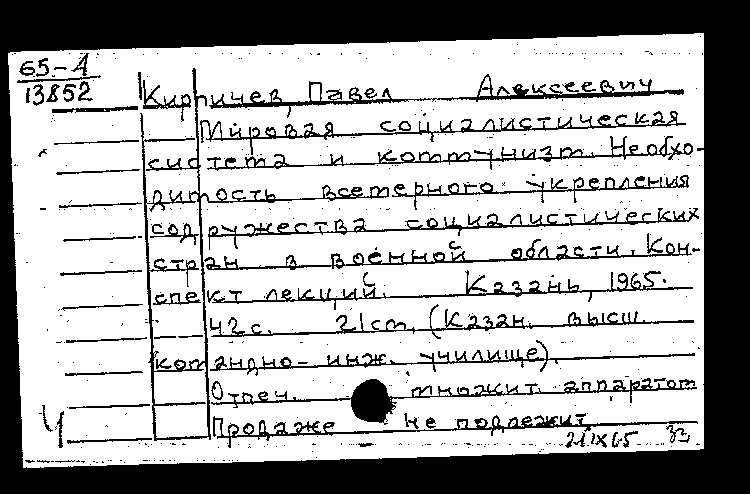 65-4
13852
Кирпичев, Павел Алексеевич
Мировая социалистическая
система и коммунизм. Необхо-
димость всемерного укрепления
содружества социалистических
стран в военной области. Кон-
спект лекций. Казань, 1965.
42с. 21см. (Казан. высш.
командно-инж. училище).
Отпеч. множит. аппаратом
Продаже не подлежит